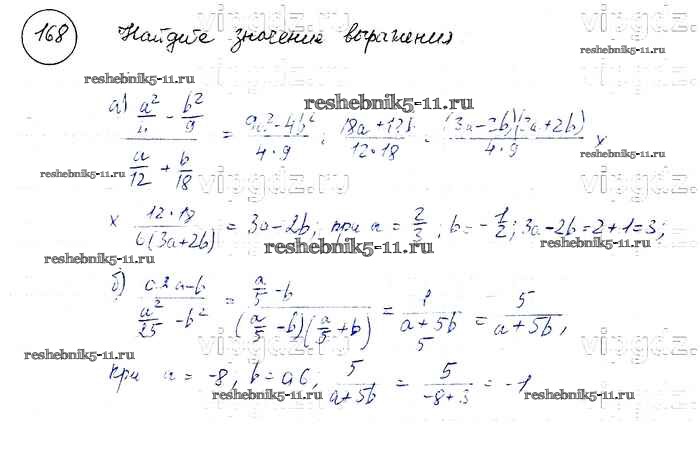 168 Найдите значение выражения
а) (a²/4 - b²/9) / (a/12 + b/18) = (9a²-4b²)/(4·9) : (18a+12b)/(12·18) = (3a-2b)(3a+2b)/(4·9) ×
× 12·18/(6(3a+2b)) = 3a-2b; при a = 2/3; b = -1/2; 3a-2b=2+1=3;
б) (0,2a-b)/(a²/25 - b²) = (a/5 - b)/((a/5 - b)(a/5 + b)) = 1/((a+5b)/5) = 5/(a+5b),
при a = -8, b = 0,6; 5/(a+5b) = 5/(-8+3) = -1
reshebnik5-11.ru
vipgdz.ru